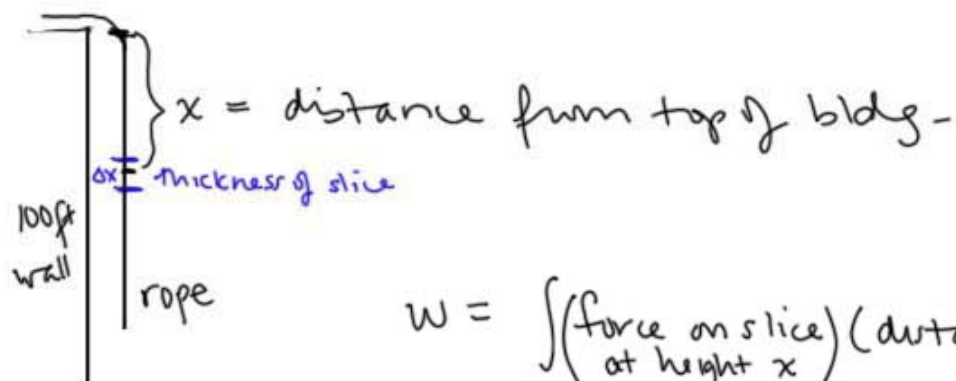 x = distance from top of bldg-
Δx thickness of slice
100ft
wall
rope
W = ∫(force on slice)(dista
at height x